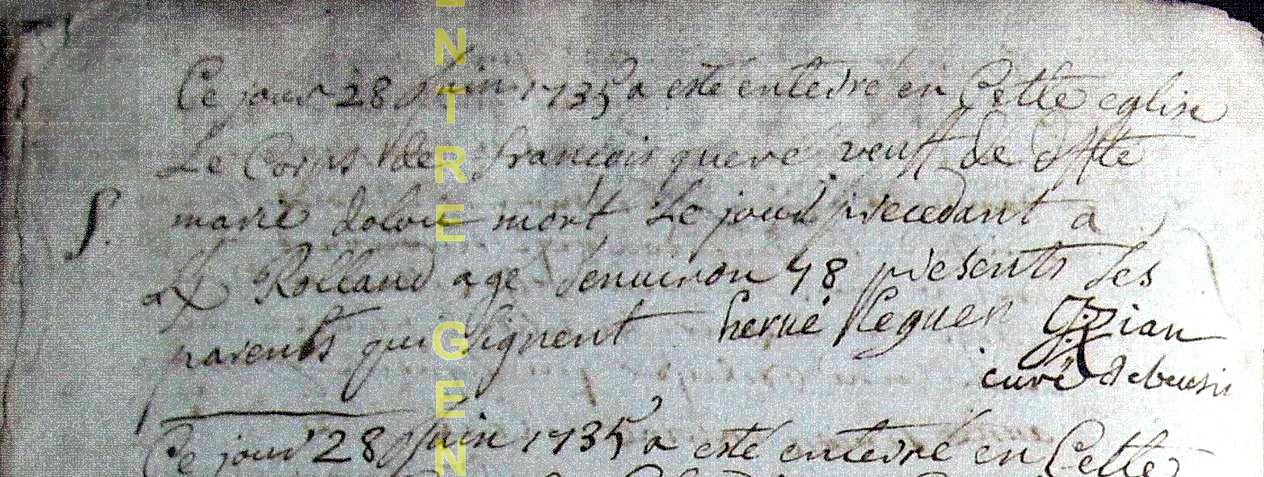 Ce jour 28 Juin 1735 a esté enterré en Cette eglise
Le Corps de francois queré veuff de deffte
marie dolou mort Le jour precedant a
Rolland agé denuiron 48 presents Ses
S.
parents qui Signent hervé Leguen
curé
Ce jour 28 Juin 1735 a esté enterré en Cette
ENTRE GEN